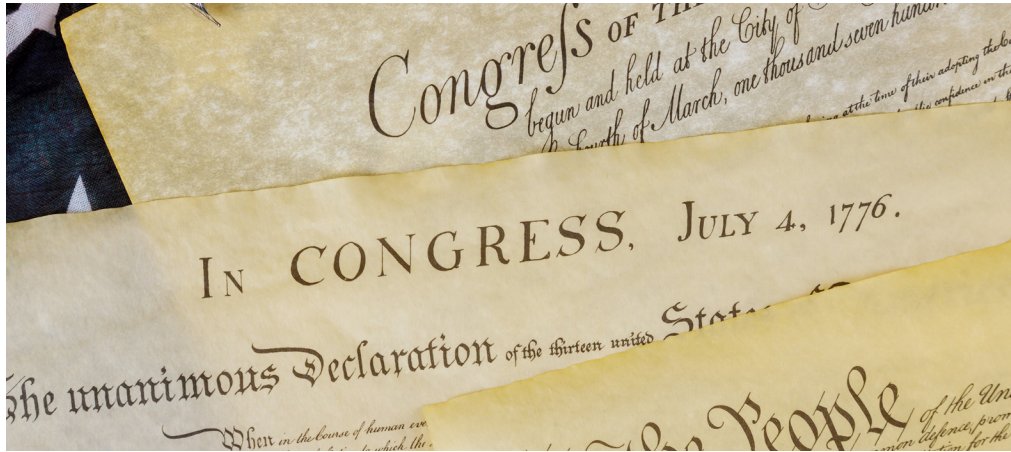 Congreſs OF THE
begun and held at the City of
Fourth of March, one thousand seven hundred
at the time of their adopting the
confidence in the
IN CONGRESS, JULY 4, 1776.
The unanimous Declaration of the thirteen united States
When in the Course of human eve
to which the
the People of the Uni
mmon defence, prom
tion for the